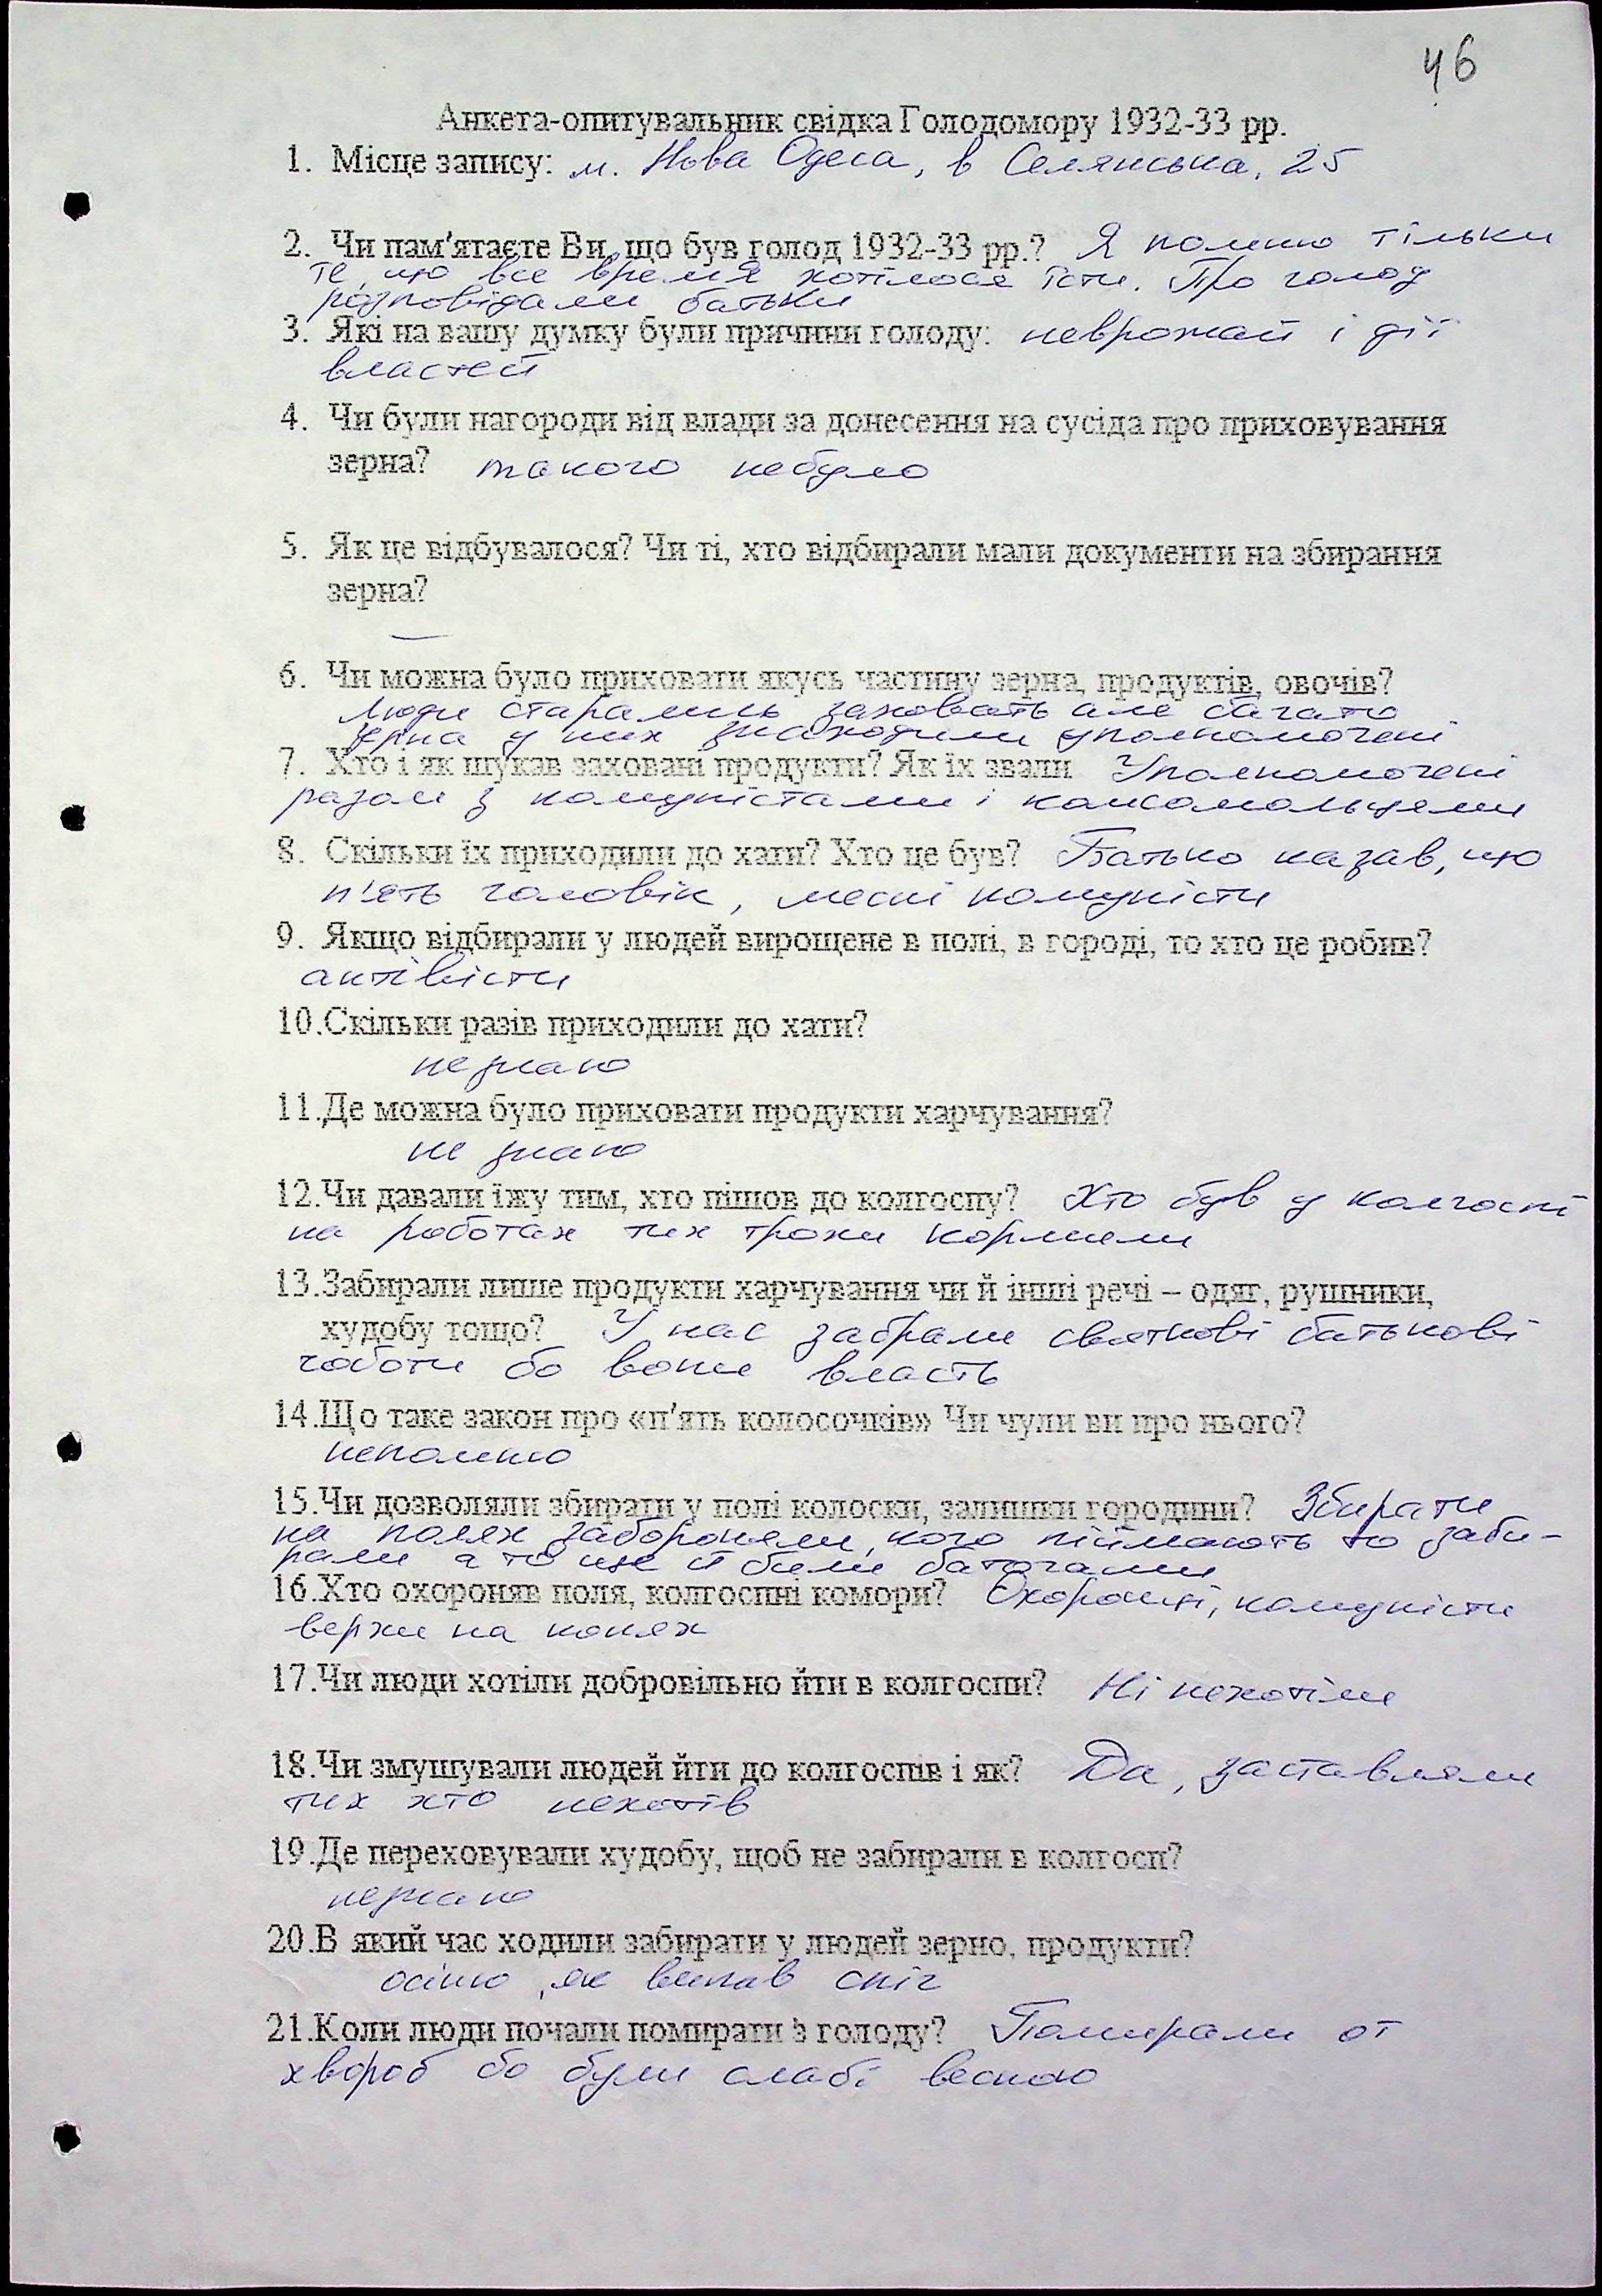 46
Анкета-опитувальник свідка Голодомору 1932-33 рр.
1. Місце запису: м. Нова Одеса, в Селянська, 25
2. Чи пам'ятаєте Ви, що був голод 1932-33 рр.? Я помню тільки
те, що все время хотілося їсти. Про голод
розповідали батьки
3. Які на вашу думку були причини голоду: неврожай і дії
властей
4. Чи були нагороди від влади за донесення на сусіда про приховування
зерна? такого небуло
5. Як це відбувалося? Чи ті, хто відбирали мали документи на збирання
зерна?
—
6. Чи можна було приховати якусь частину зерна, продуктів, овочів?
люди старались заховать але багато
зерна у них знаходили уполномочені
7. Хто і як шукав заховані продукти? Як їх звали Уполномочені
разом з комуністами і комсомольцями
8. Скільки їх приходили до хати? Хто це був? Батько казав, що
п'ять чоловік, месні комуністи
9. Якщо відбирали у людей вирощене в полі, в городі, то хто це робив?
актівісти
10.Скільки разів приходили до хати?
незнаю
11.Де можна було приховати продукти харчування?
не знаю
12.Чи давали їжу тим, хто пішов до колгоспу? Хто був у колгоспі
на роботах тих трохи кормили
13.Забирали лише продукти харчування чи й інші речі – одяг, рушники,
худобу тощо? У нас забрали святкові батькові
чоботи бо вони власть
14.Що таке закон про «п'ять колосочків» Чи чули ви про нього?
непомню
15.Чи дозволяли збирати у полі колоски, залишки городини? Збирати
на полях забороняли, кого піймають то заби-
рали а то ще й били батогами
16.Хто охороняв поля, колгоспні комори? Охоронці, комуністи
верхи на конях
17.Чи люди хотіли добровільно йти в колгоспи? Ні нехотіли
18.Чи змушували людей йти до колгоспів і як? Да, заставляли
тих хто нехотів
19.Де переховували худобу, щоб не забирали в колгосп?
незнаю
20.В який час ходили забирати у людей зерно, продукти?
осінню, як випав сніг
21.Коли люди почали помирати з голоду? Помирали от
хвороб бо були слабі весною